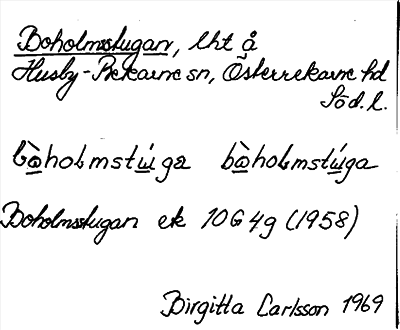 Boholmsstugan, lht å
Husby-Rekarne sn, Österrekarne hd
Söd. l.
bɷ̀holmstɯ́ga bɷ̀holmstɯ́ga
Boholmsstugan ek 10G 4g (1958)
Birgitta Carlsson 1969